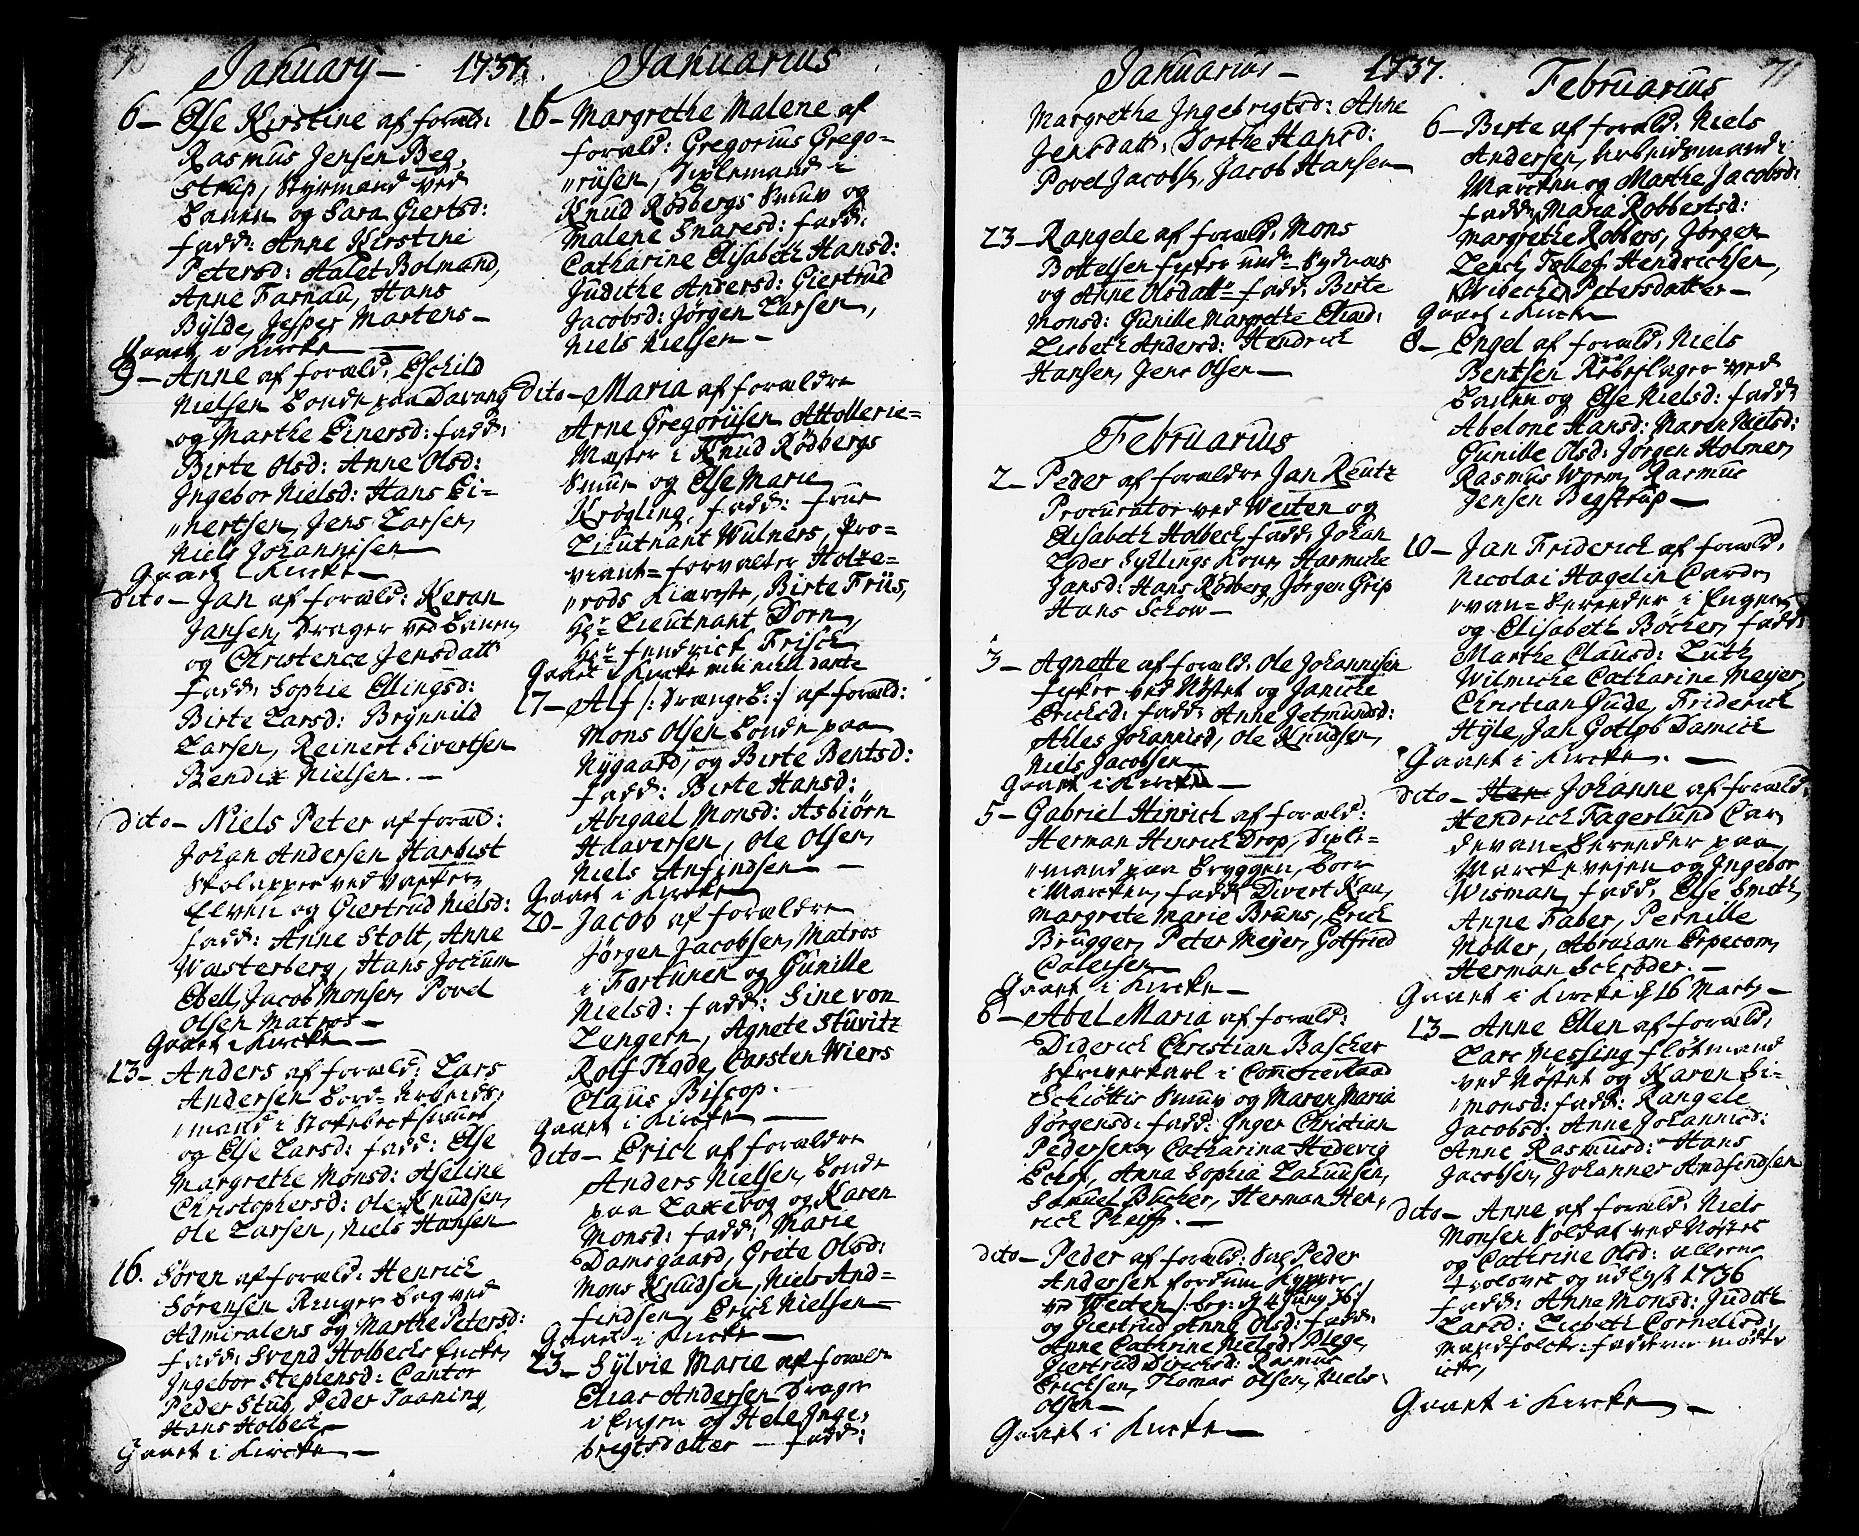 70
January — 1737.
6 — Else Kirstine af foræld:
Rasmus Jensen Beg,
strup, Styrmand ved
og Sara Giertsd:
fadd: Anne Kirstine
Petersd: Aalet Bolmand,
Anne Farnau, Hans
Bÿlde, Jesper Martens —
Gaaet i Kircke —
9 — Anne af foræld: Eschild
Nielsen Bonde paa Davang
og Marthe Einersd: fadd:
Birte Olsd: Anne Olsd:
Jngebor Nielsd: Hans Ei=
"nertsen, Jens Larsen,
Niels Johannisen —
Gaaet i Kircke —
dito — Jan af foræld: Keran
Jansen, Drager ved
og Christence Jensdatt
fadd: Sophie Ellingsd:
Birte Larsd: Brÿnnild
Larsen, Reinert Sivertsen
Bendix Nielsen. —
dito — Niels Peter af foræld:
Johan Andersen Harbist
ved
Elven og Giertrud Nielsd:
fadd: Anne Stolt, Anne
Wæsterberg, Hans Jochum
Ebell, Jacob Monsen, Povel
Olsen Matros —
Gaaet i Kircke —
13 — Anders af foræld: Lars
Andersen Bord= Arbeids,
"mand i
og Else Larsd: fadd: Else
Margrethe Monsd: Aseline
Christophersd: Ole Knudsen,
Ole Larsen, Niels Hansen
16. Søren af foræld: Henrich
Sørensen ved
Admiralens og Marthe Petersd:
fadd: Svend Holbechs Encke,
Jngebor Stephensd: Cantor
Peder Stub, Peder Taaning,
Hans Holbech —
Gaaet i Kircke —
Januarius
16 — Margrethe Malene af
foræld: Gregorius Grego=
"riisen, Diplemand i
Knud Rødbergs Smuw og
Malene Snaresd: fadd:
Catharine Elisabeth Hansd:
Judithe Andersd: Giertrud
Jacobsd: Jørgen Larsen,
Niels Nielsen —
dito — Maria af forældre
Arne Gregoriisen Attollerie=
Mæster i Knud Rødbergs
Smuw og Else Marie
Krøgling, fadd: frue
Lieutnant Wulners, Pro=
viant=forvalter Holze=
"rods Kiæreste, Birte Friis,
Hr Lieutnant Dorn,
Hr fendrick Frisch
Gaaet i Kircke
17 — Alf /: Drængeb: / af foræld:
Mons Olsen Bonde paa
Nygaard, og Birte Bentsd:
fadd: Birte Hansd:
Abigael Monsd: Asbiörn
Halaversen, Ole Olsen,
Niels Anfindsen —
Gaaet i Kircke
20 — Jacob af forældre
Jørgen Jacobsen, Matros
i Fortunen og Gunille
Nielsd: fadd: Sine von
Lengern, Agnete Stuvitz
Rolf Thode, Carsten Wiers
Claus Biscop. —
Gaaet i Kircke —
dito — Erich af forældre
Anders Nielsen, Bonde
paa Laxevog og Karen
Monsd: fadd: Marie
Damsgaard, Grete Olsd:
Mons Knudsen, Niels And=
findsen, Erich Nielsen —
Gaaet i Kircke —
23 — Sÿlvie Marie af foræld:
Elias Andersen Drager
i Engen og Hele Jnge,
brigtsdatter — fadd:
Januarius — 1737.
Margrethe Jngebrigtsd: Anne
Jensdatt: Dorthe Hansd:
Povel Jacobs, Jacob Hansen —
23 — Rangele af foræld: Mons
Bottelsen fisker und= Sydnes
og Anne Olsdatt= fadd: Birte
Monsd: Gunille Margrethe Eliæd:
Lisbeth Andersd: Hendrich
Hansen, Jens Olsen —
Februarius
2 — Peder af forældre Jan Reutz
Procurator ved Westen og
Elisabeth Holbech, fadd: Johan
Lyder Fyllings Kone, Harmicke
Jansd: Hans Rødberg, Jørgen Grip
Hans Schow —
3 — Agnette af foræld: Ole Johannisen
fisker ved Nøstet og Janicke
Erichsd: fadd: Anne Jetmundsd:
Ahles Johannisd, Ole Knudsen,
Niels Jacobsen
Gaaet i Kircke —
5 — Gabriel Hinrich af foræld:
Herman Hinrich Drop, Diple=
"mand paa Bryggen, boer
i Marcken, fadd: Divert Kau,
Margrete Marie Bruns, Erich
Brügger, Peter Meÿer, Gotfried
Calersen —
Gaaet i Kircke —
6 — Abel Maria af foræld:
Diderich Christian Bascher
Skriverkarl i
Schiøttis Smuw og Maren Maria
Jørgensd: fadd: Jnger Christian
Pedersens, Catharina Hedevig
Echof, Anna Sophia Lahuusen,
Samuel Bücher, Herman Hen,
rich Pheiff. —
dito — Peder af foræld: Sal Peder
Andersen fordum
ved Westen /: beg: d 4 Junÿ 36:/
og Giertrud Anna Olsd: fadd:
Anne Cathrine Nielsd: Plege,
Giertrud Dirichsd: Rasmus
Erichsen, Thomas Olsen, Niels
Olsen —
Gaaet i Kircke —
71
Februarius
6 — Birte af foræld: Niels
Andersen, Arbeidsmand i
Marcken og Marthe Jacobsd:
fadd: Maria Robbertsd:
Margrethe Robbers, Jørgen
Lerch, Tollef Hendrichsen,
Wibeche Petersdatter —
Gaaet i Kircke
8 — Engel af foræld: Niels
Bentsen Rebeslager ved
og Else Nielsd: fadd:
Abelone Hansd: Maren Nielsd:
Gunille Olsd: Jørgen Holmer,
Rasmus Worm, Rasmus
Jensen Begstrup —
10 — Jan Friderich af foræld:
Nicolai Hagelin Cardu,
"van=bereeder i Engen,
og Elisabeth Böcher, fadd:
Marthe Clausd: Luth,
Wilmicke Catharine Meÿer,
Christian Gude, Friderich
Hÿle, Jan Gotlob Damich
Gaaet i Kircke. —
dito — Han Johanne af foræld:
Hendrich Fagerlund Car,
devan=bereeder paa
Marckeveien og Jngebor
Wisman, fadd: Else Smith,
Anne Faber, Pernille
Møller, Abraham Erpecom,
Herman Schrøder. —
Gaaet i Kircke d 16 Marty —
13 — Anne Ellen af foræld:
Lars Messing fløtmand
ved Nøstet og Karen Si=
"monsd: fadd: Rangele
Jacobsd: Anne Johannisd:
Anne Rasmusd: Hans
Jacobsen, Johannes Andfindsen
dito — Anne af foræld: Niels
Monsen Soldat ved Nøstet
og Cathrine Olsd: allerne
trolovet og udlyst 1736
fadd: Anne Monsd: Judith
Larsd: Lisbeth Cornelisd:
mandfolcke: fadderne mødte
icke,
Gaaet i Kircke —